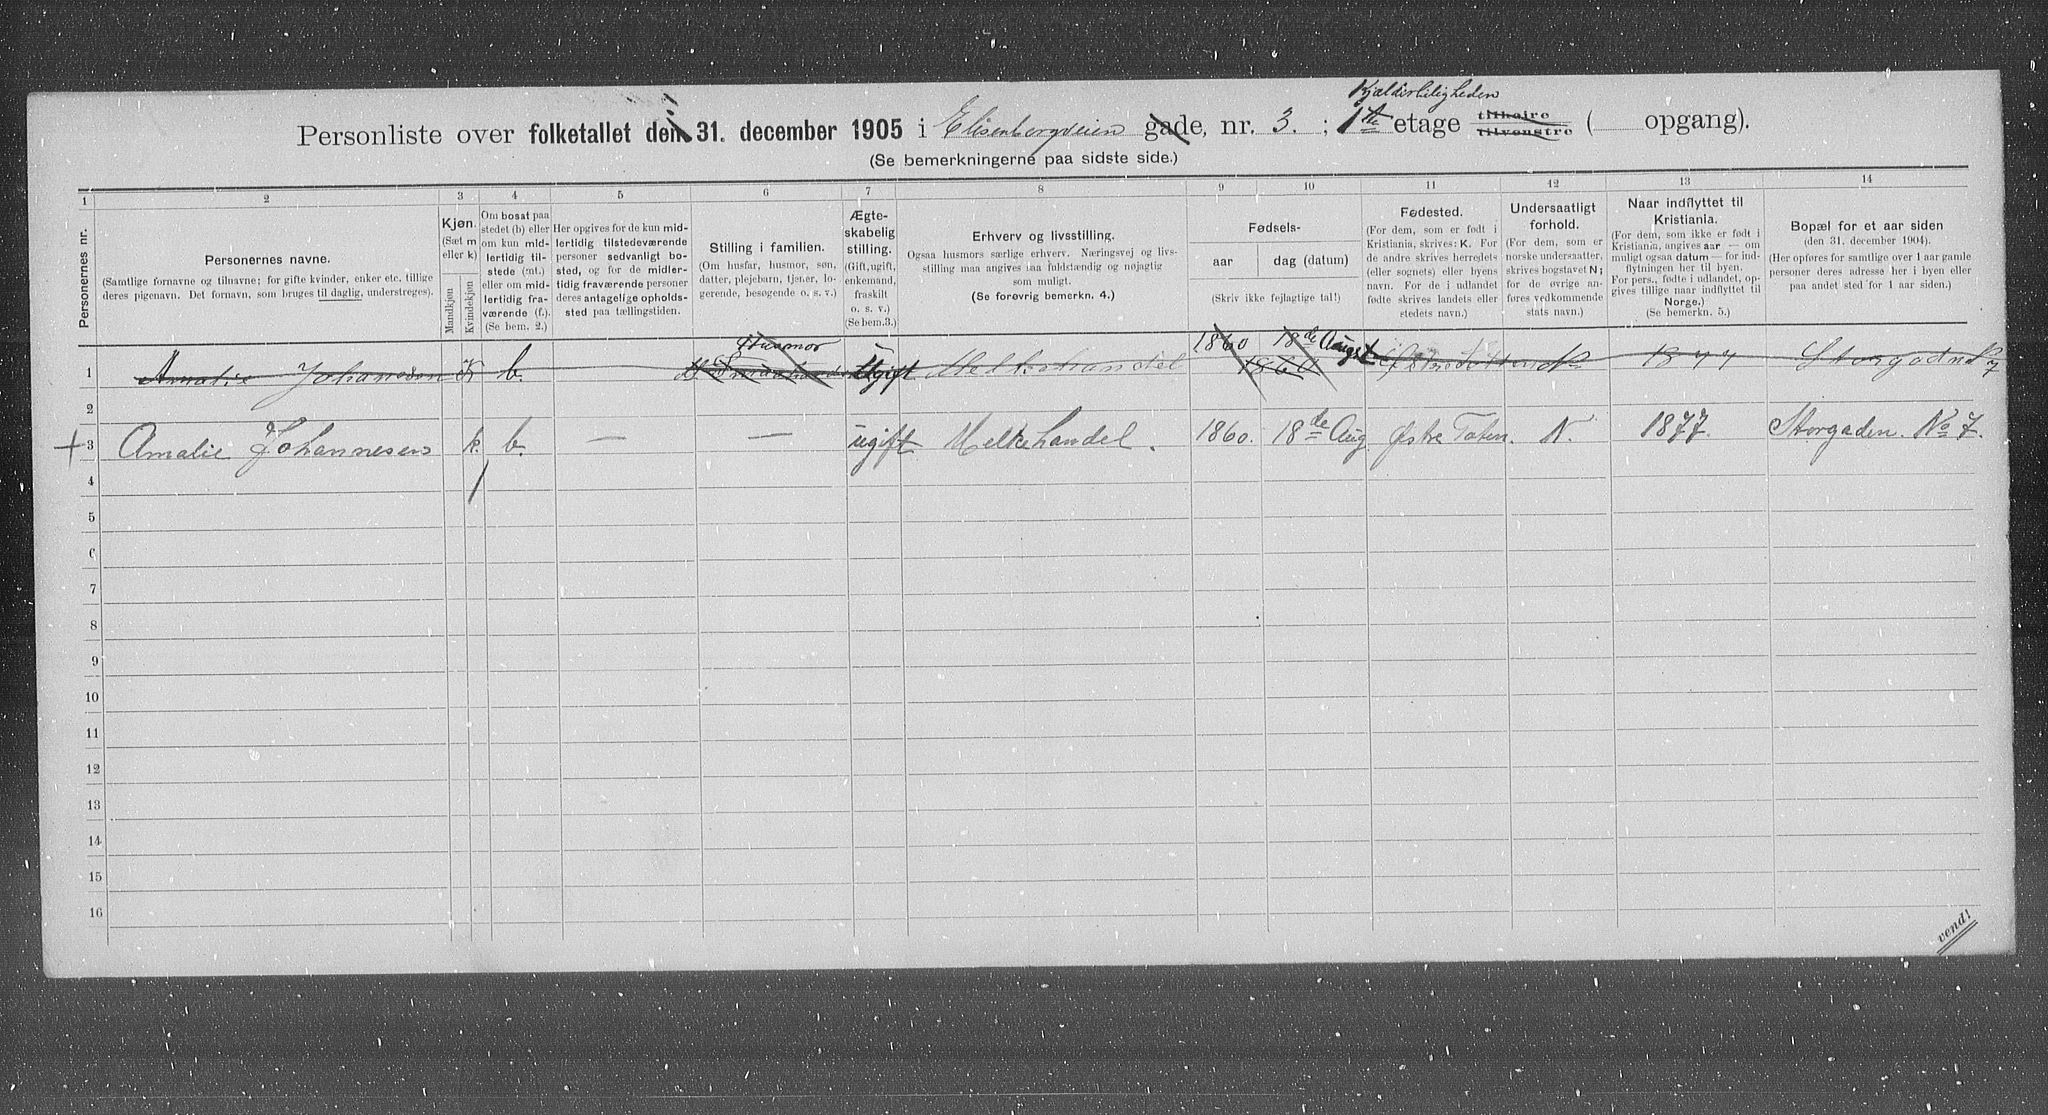 Kjælderleiligheden
Personliste over folketallet den 31. december 1905 i Elisenbergveien gade, nr. 3. ; 1ste etage tilhøire tilvenstre ( opgang).
(Se bemerkningerne paa sidste side.)
1 2 3 4 5 6 7 8 9 10 11 12 13 14
Personernes nr.
Personernes navne.
(Samtlige fornavne og tilnavne; for gifte kvinder, enker etc. tillige
deres pigenavn. Det fornavn, som bruges til daglig, understreges).
Kjøn.
(Sæt m
eller k)
Mandkjøn
Kvindekjøn
Om bosat paa
stedet (b) eller
om kun mid-
lertidig til-
stede (mt.)
eller om mid-
lertidig fra-
værende (f.).
(Se bem. 2.)
Her opgives for de kun mid-
lertidig tilstedeværende
personer sedvanlig bo-
sted, og for de midler-
tidig fraværende personer
deres antagelige opholds-
sted paa tællingstiden.
Stilling i familien.
(Om husfar, husmor, søn,
datter, plejebarn, tjener, lo-
gerende, besøgende o. s. v.)
Ægte-
skabelig
stilling.
(Gift, ugift,
enkemand,
fraskilt
o. s. v.)
(Se bem.3.)
Erhverv og livsstilling.
Ogsaa husmors særlige erhverv. Næringsvej og livs-
stilling maa angives saa fuldstændig og nøjagtig
som muligt.
(Se forøvrig bemerkn. 4.)
Fødsels-
aar dag (datum)
(Skriv ikke fejlagtige tal!)
Fødested.
(For dem, som er født i
Kristiania, skrives: K. For
de andre skrives herredets
(eller sognets) eller byens
navn. For de i udlandet
fødte skrives landets eller
stedets navn.)
Undersaatligt
forhold.
(For dem, som er
norske undersaatter,
skrives bogstavet N;
for de øvrige an-
føres vedkommende
stats navn.)
Naar indflyttet til
Kristiania.
(For dem, som ikke er født i
Kristiania, angives aar — om
muligt ogsaa datum — for ind-
flytningen her til byen.
For pers., fødte i udlandet, op-
gives tillige naar indflyttet til
Norge.)
(Se bemerkn. 5.)
Bopæl for et aar siden
(den 31. december 1904).
(Her opføres for samtlige over 1 aar gamle
personer deres adresse her i byen eller
paa andet sted for 1 aar siden.)
Husmor 1860 18de Augst
1 Amalie Johansson K b. Ugift Melkehandel 1860 Østre Toten N 1877 Storgaden No 7
2
+ 3 Amalie Johannesen k. b. — — ugift Melkehandel. 1860. 18de Aug Østre Toten. N. 1877. Storgaden. No 7.
4
5
6
7
8
9
10
11
12
13
14
15
16
vend!